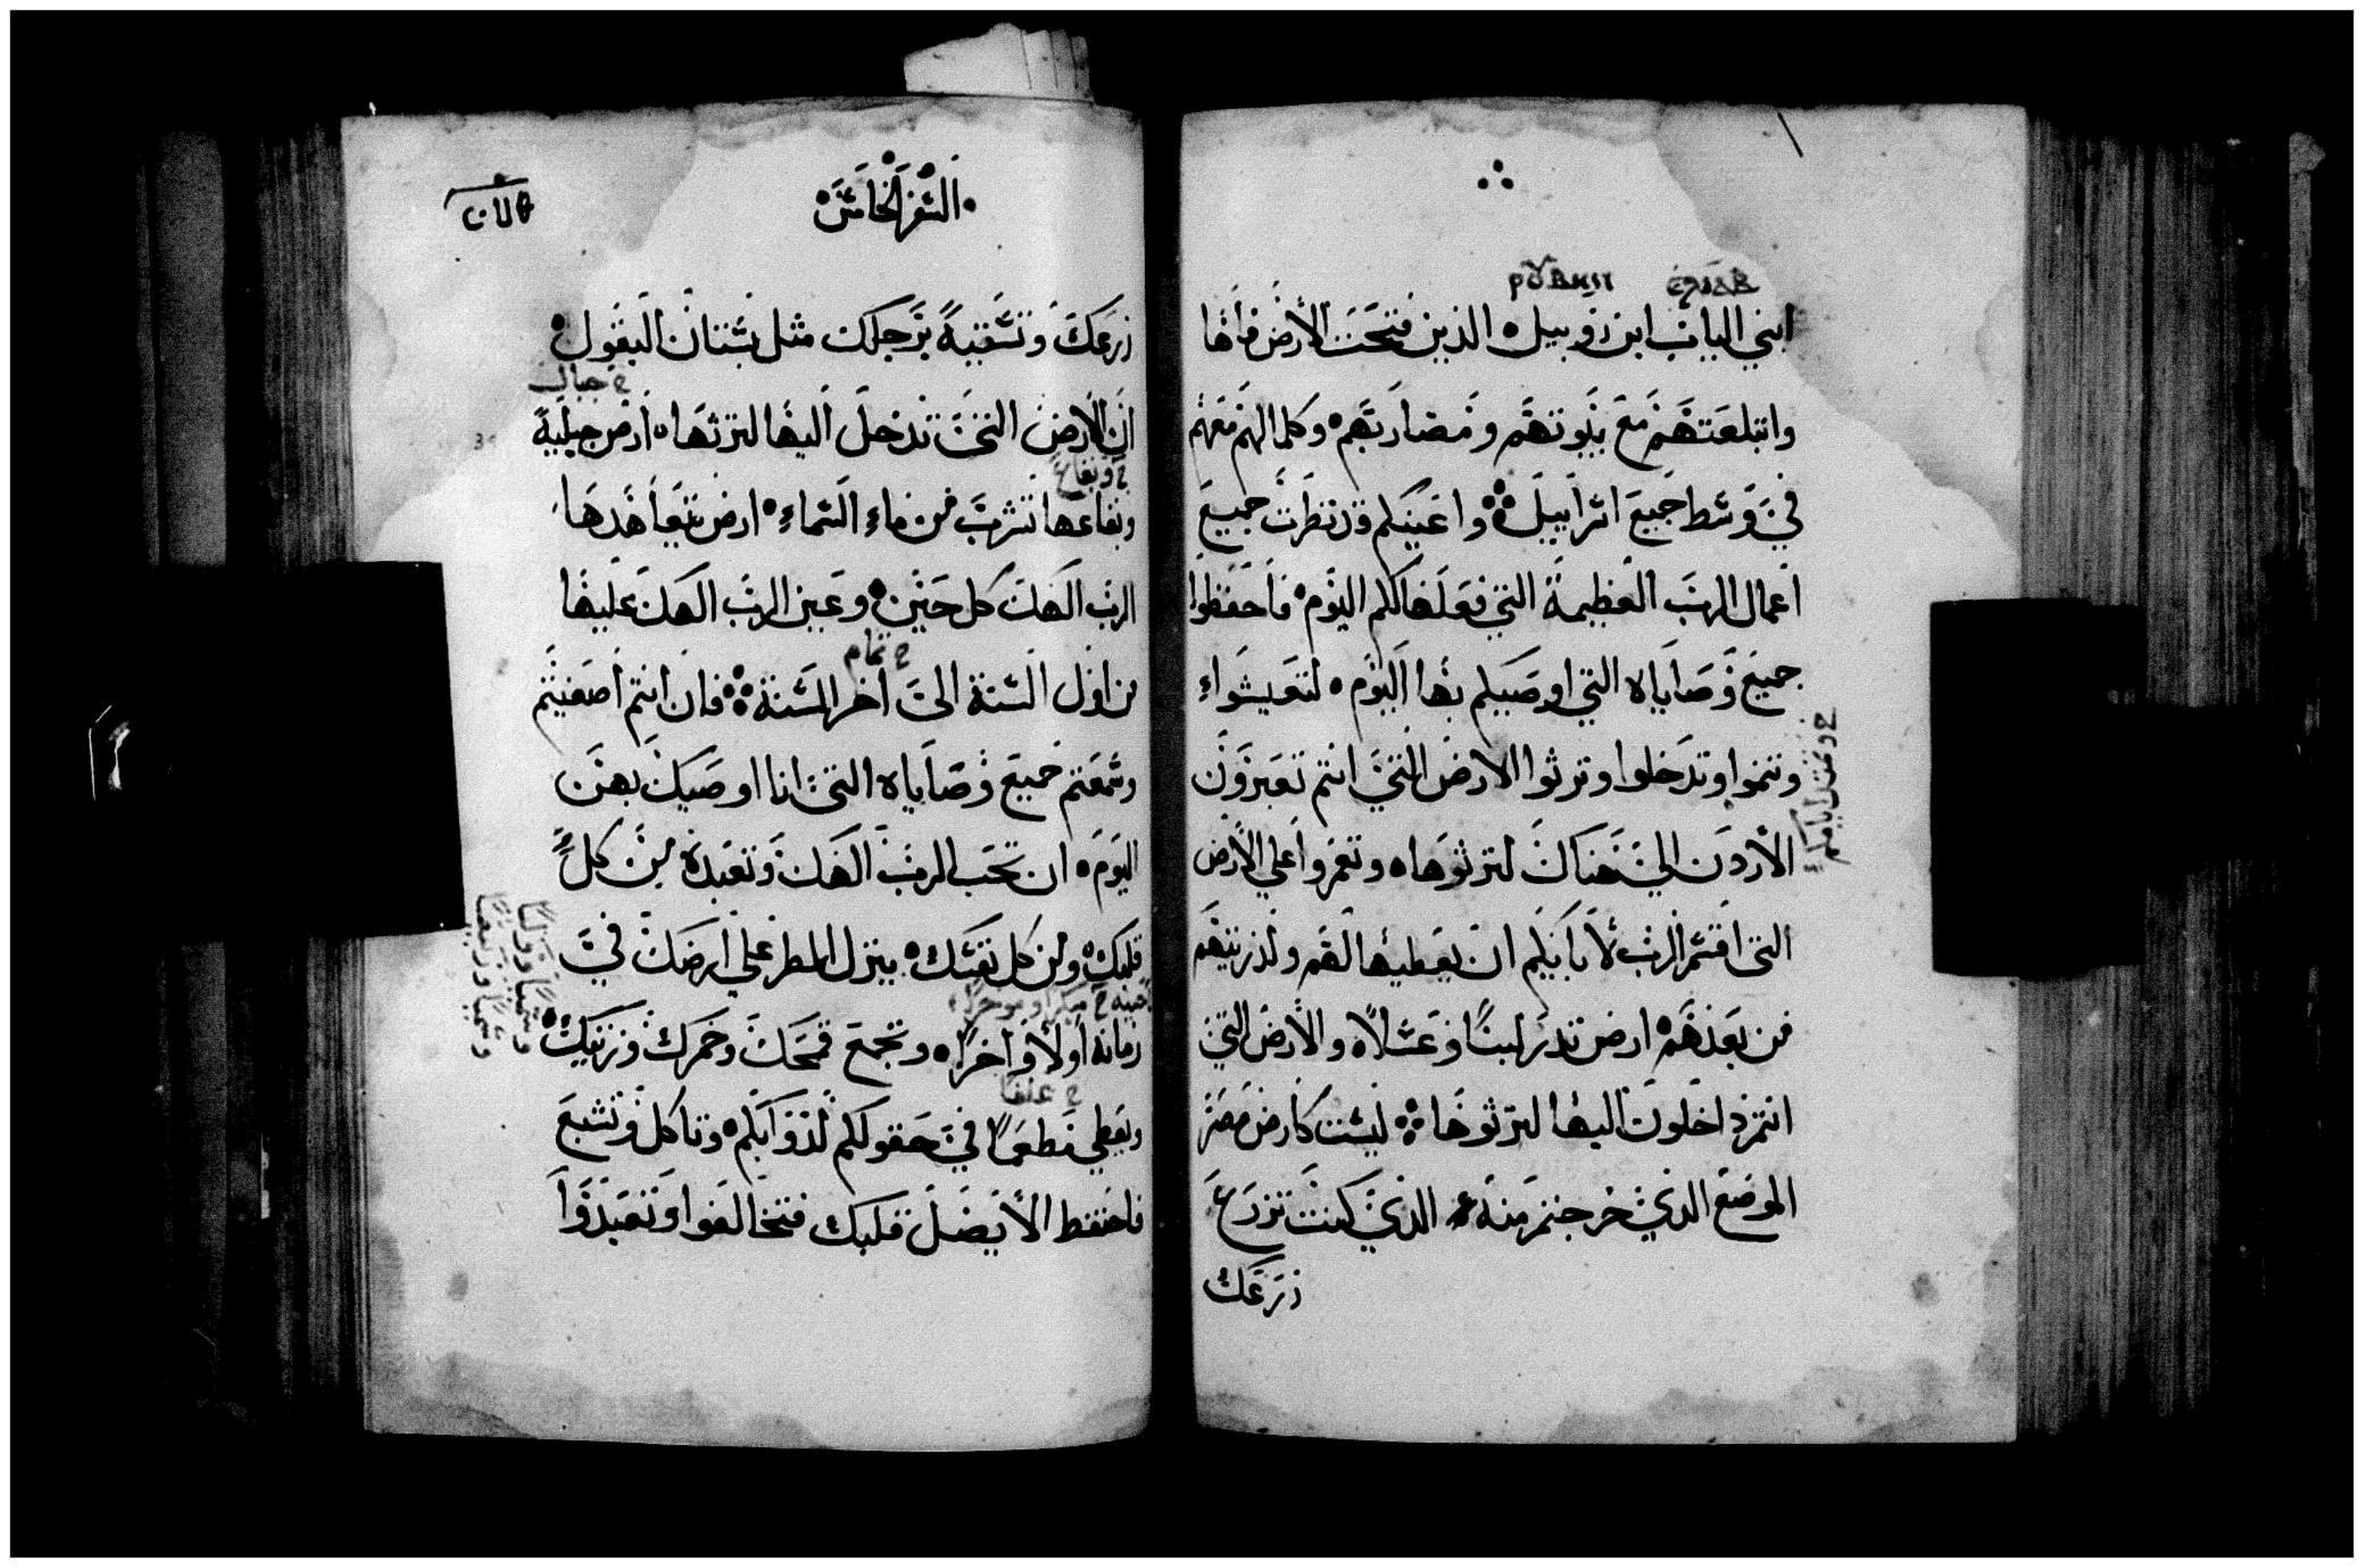 ابني الياب ابن روبيل الذين فتحت الارض فاها
وابتلعتهم مع بيوتهم ومضاربهم وكلما لهم معهم
في وسط جميع اسراييل واعينكم قد نظرت جميع
اعمال الرب العظيمة التي فعلها لكم اليوم فاحفظوا
جميع وصاياه التي اوصيكم بها اليوم لتعيشواء
وتنموا وتدخلوا وترثوا الارض التي انتم تعبرون
الاردن الي هناك لترثوها وتعمروا علي الارض
التي اقسم الرب لابايكم ان يعطيها لهم ولذريتهم
من بعدهم ارض تدر لبنًا وعسلًا والارض التي
انتم داخلون اليها لترثوها ليست كارض مصر
الموضع الذي خرجتم منه الذي كنت تزرع
زرعك
السفر الخامس
زرعك وتسقيه برجلك مثل بستان البقول
ح جبال
ان الارض التي تدخل اليها لترثها ارض جبلية
ح وبقاع
وبقاعها تشرب من ماء السماء ارض يتعاهدها
الرب الهك كل حين وعين الرب الهك عليها
ح تمام
من اول السنة الى اخر السنة فان انتم اصغيتم
وسمعتم جميع وصاياه التي انا اوصيك بهن
اليوم ان تحب الرب الهك وتعبده من كل
قلبك ومن كل نفسك ينزل المطر علي ارضك في
ح مبكرا وموخرا
زمانه اولًا واخرًا وتجمع قمحك وخمرك وزيتك
ح علفا
ويعطي مطعمًا في حقولكم لدوابكم وتاكل وتشبع
فاحتفظ الا يضل قلبك فتخالفوا وتعبدوا